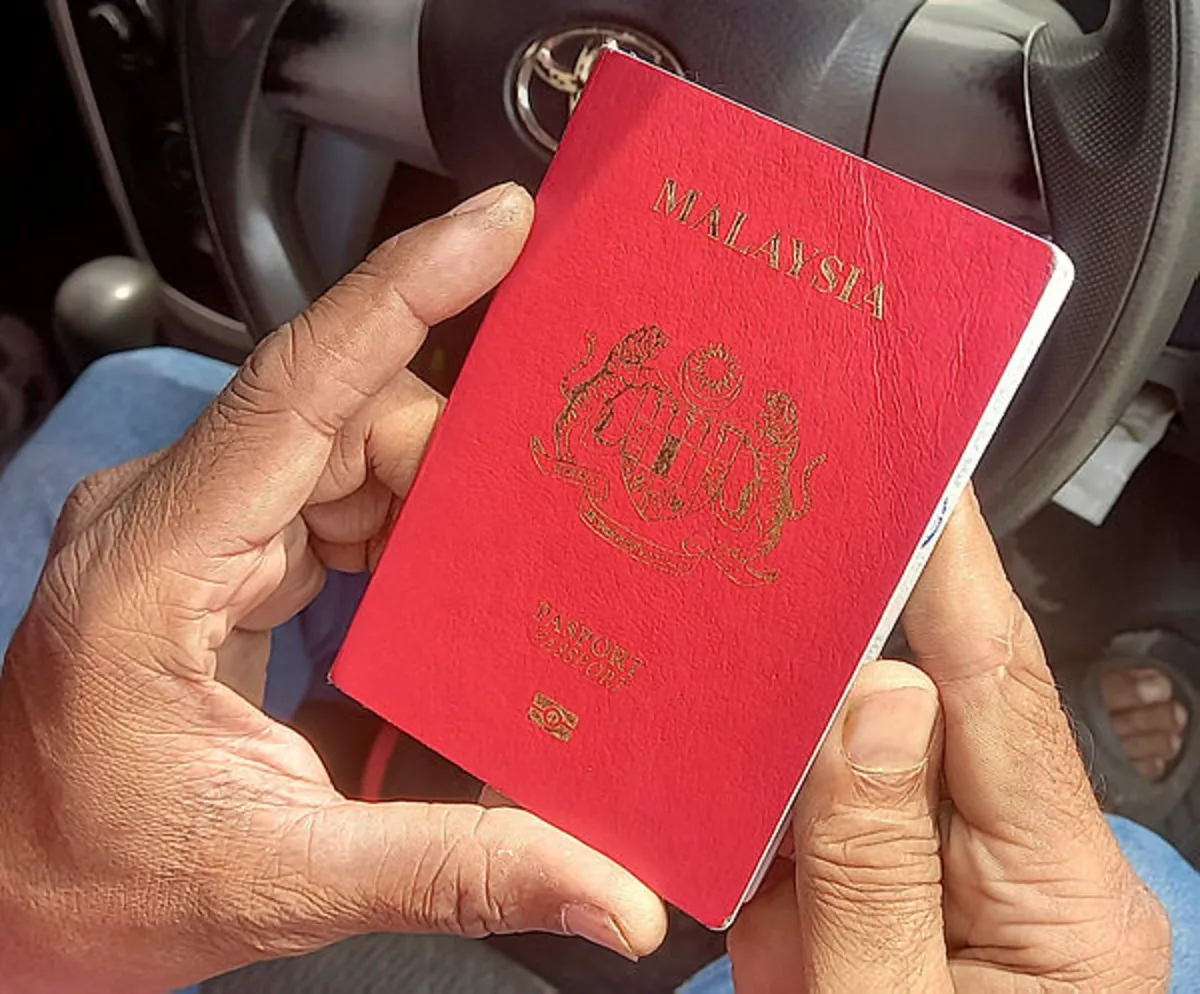 MALAYSIA
PASPORT
PASSPORT